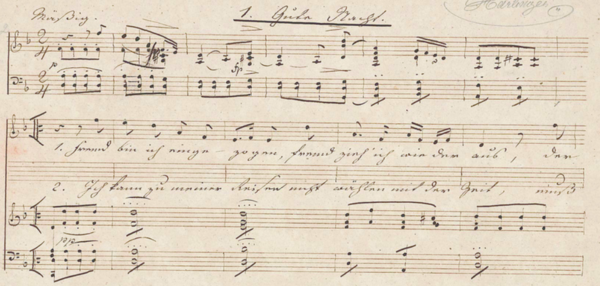 Mäßig. 1. Gute Nacht.
p
fp
1. Fremd bin ich einge-zogen, fremd zieh' ich wieder aus, der
2. Ich kann zu meiner Reisen nicht wählen mit der Zeit, muß
pp